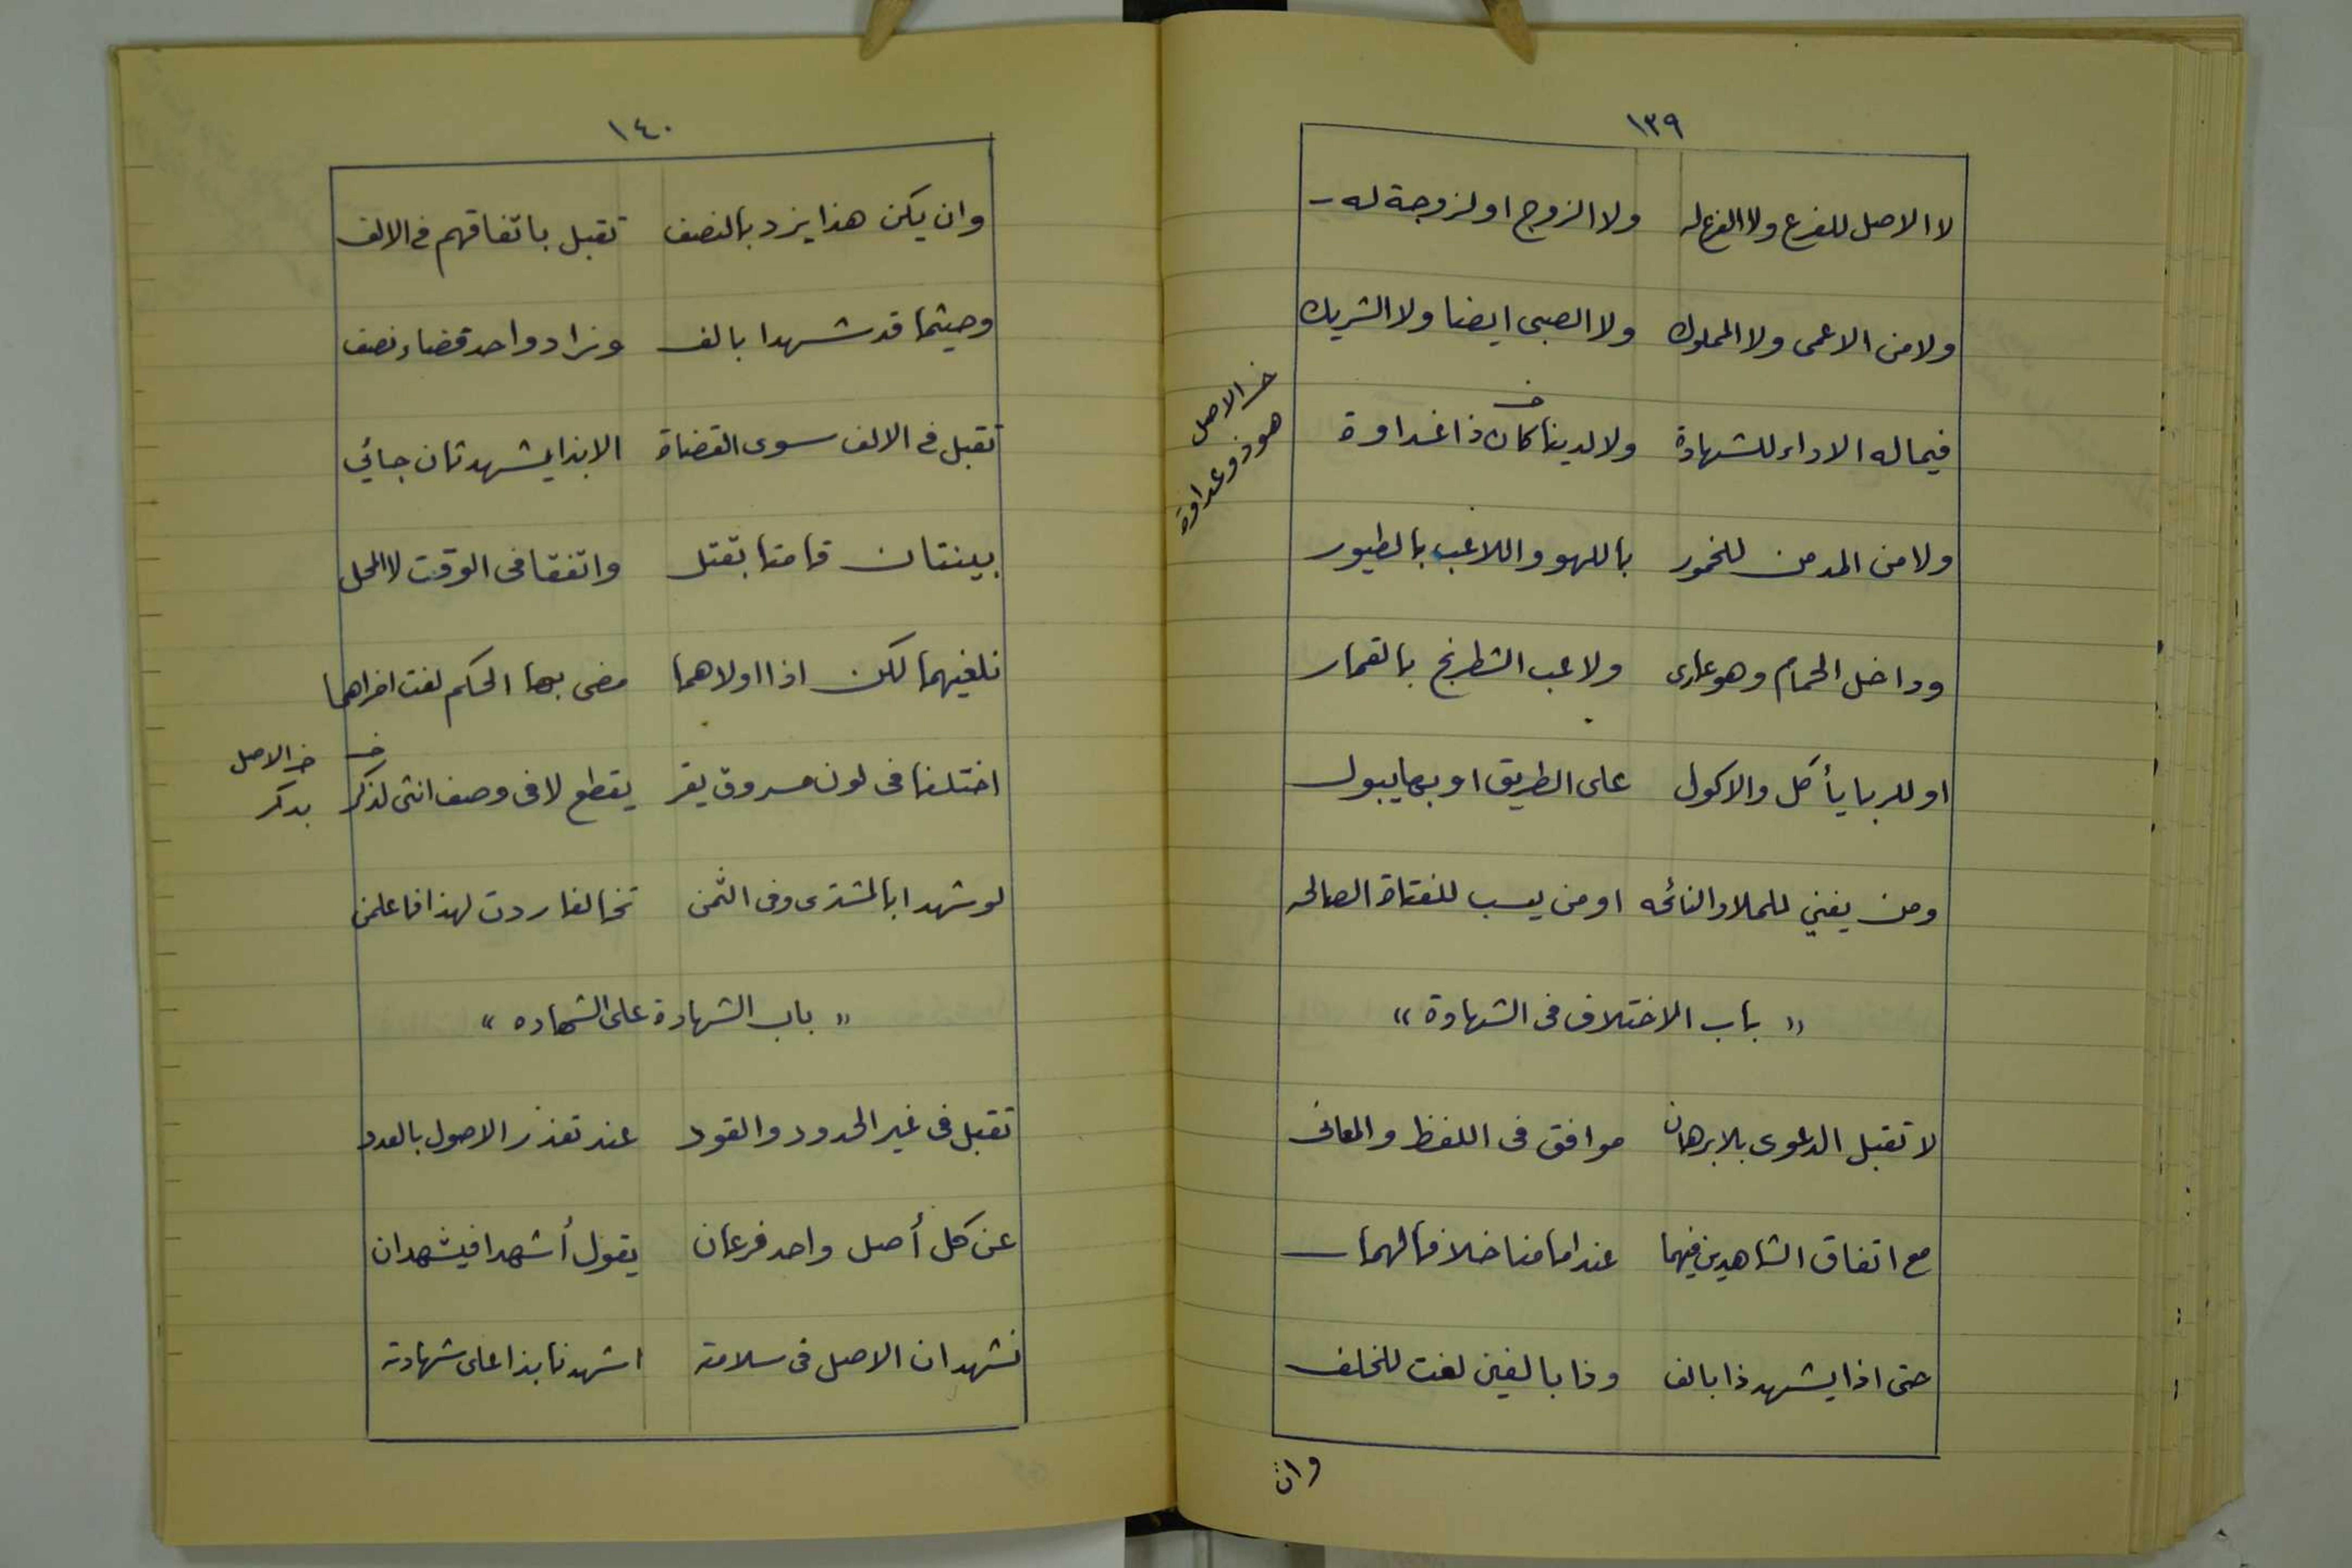 ١٣٩
لا الاصل للفرع ولا الفرع له ولا الزوج او لزوجة له
ولا من الاعمى ولا المملوك ولا الصبى ايضا ولا الشريك
فيما له الاداء للشهادة ولا لدينا كان ذا عداوة
خ الاصل
هو ذو عداوة
ولا من المدمن للخمور باللهو واللاعب بالطيور
وداخل الحمام وهو عارى ولاعب الشطرنج بالقمار
او للربا يأكل والاكول على الطريق او بها يبول
ومن يغني للملا والنائحه او من يسب للفتاة الصالحه
« باب الاختلاف فى الشهادة »
لا تقبل الدعوى بلا برهان موافق فى اللفظ والمعانى
مع اتفاق الشاهدين فيهما عند امامنا خلافا لهما
حتى اذا يشهد ذا بالف وذا بالفين لغت للخلف
وان
١٤٠
وان يكن هذا يزد بالنصف تقبل باتفاقهم فى الالف
وحيثما قد شهدا بالف وزاد واحد قضاء نصف
تقبل فى الالف سوى القضاة الا بذا يشهد ثان جائي
بينتان قامتا بقتل واتفقا فى الوقت لا المحل
نلغيهما لكن اذا اولاهما مضى بها الحكم لغت اخراهما
اختلفا فى لون مسروق يقر يقطع لا فى وصف انثى لذكر
خ الاصل
بدكر
لو شهدا بالمشترى وفى الثمن تخالفا ردت لهذا فاعلمن
« باب الشهادة على الشهاده »
تقبل فى غير الحدود والقود عند تعذر الاصول بالعدد
عن كل أصل واحد فرعان يقول أشهدا فيشهدان
نشهد ان الاصل فى سلامته اشهدنا بذا على شهادته